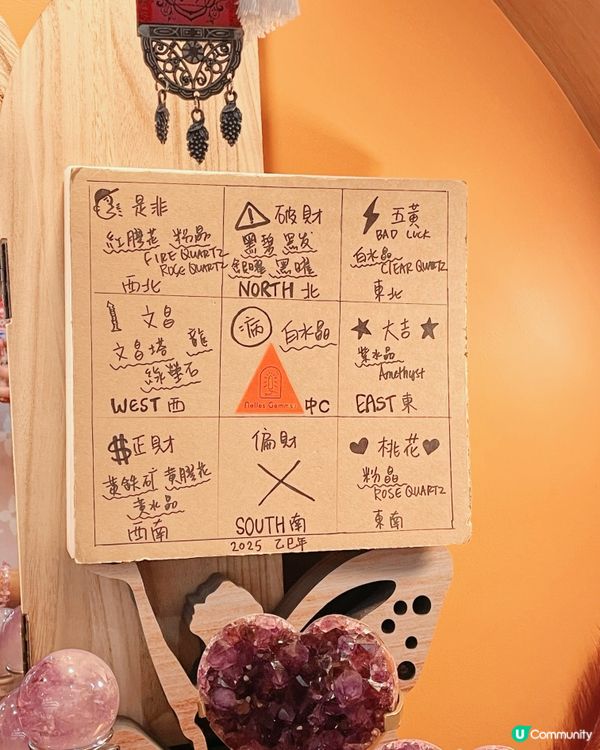 是非
紅膠花 粉晶
FIRE QUARTZ
ROSE QUARTZ
西北
破財
黑碧 黑发
銀曜 黑曜
NORTH 北
五黃
BAD LUCK
白水晶
CLEAR QUARTZ
東北
文昌
文昌塔 龍
綠螢石
WEST 西
病 白水晶
Nelles Gemms
中C
大吉
紫水晶
Amethyst
EAST 東
$正財
黃鉄矿 黃膠花
黃水晶
西南
偏財
SOUTH 南
桃花
粉晶
ROSE QUARTZ
東南
2025 乙巳年
U Community